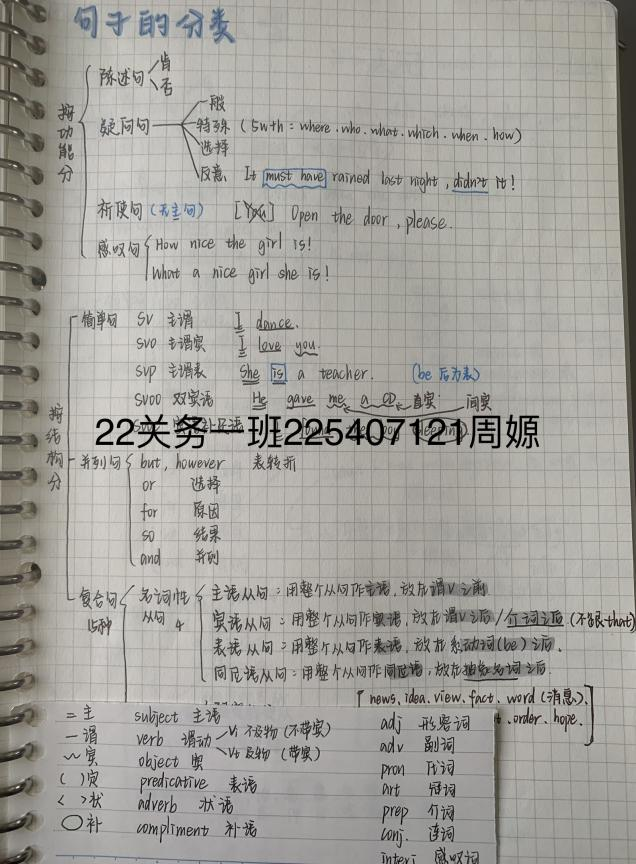 句子的分类
按功能分
陈述句 肯
否
疑问句 一般
特殊 (5w+h : where . who . what . which . when . how)
选择
反意 It must have rained last night , didn't it !
祈使句 (无主句) [You] Open the door , please.
感叹句 How nice the girl is!
What a nice girl she is!
按结构分
简单句 SV 主谓 I dance.
svo 主谓宾 I love you.
svp 主谓表 She is a teacher. (be 后为表)
svoo 双宾语 He gave me a CD 直宾 间宾
22关务一班225407121周嫄
并列句 but, however 表转折
or 选择
for 原因
so 结果
and 并列
复合句 名词性从句 4 主语从句 : 用整个从句作主语, 放在谓V之前
宾语从句 : 用整个从句作宾语, 放在谓V之后 / 介词之后 (不能that)
表语从句 : 用整个从句作表语, 放在系动词(be)之后.
同位语从句 : 用整个从句作同位语, 放在抽象名词之后.
news. idea. view. fact. word (消息).
. order. hope.
= 主 subject 主语
— 谓 verb 谓动 Vi 不及物 (不带宾)
Vt 及物 (带宾)
～ 宾 object 宾
( ) 定 predicative 表语
< > 状 adverb 状语
○ 补 compliment 补语
adj 形容词
adv 副词
pron 代词
art 冠词
prep 介词
conj. 连词
interj 感叹词